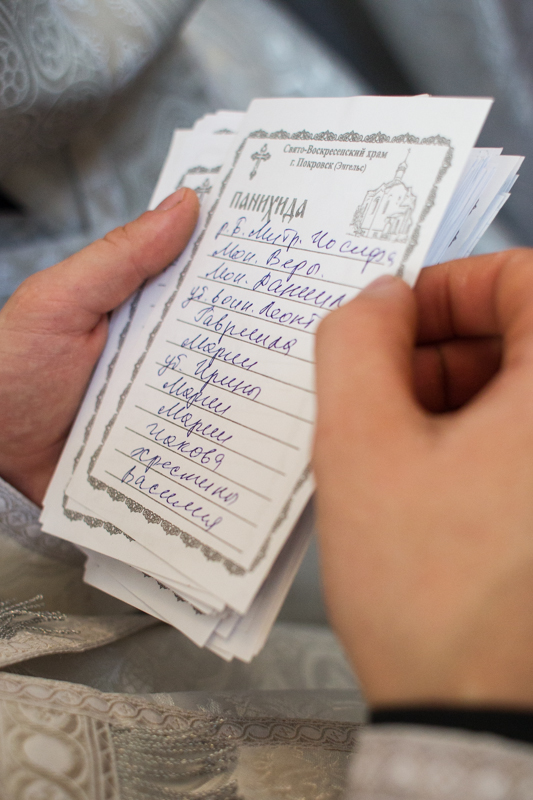 Свято-Воскресенский храм
г. Покровск (Энгельс)
ПАНИХИДА
р. Б. Митр. Иосифа
Мон. Веры.
Мон. Даниил
уб. воин. Леонт
Гавриила
Марии
уб. Ирины
Марии
Марии
Иакова
Христины
Василия